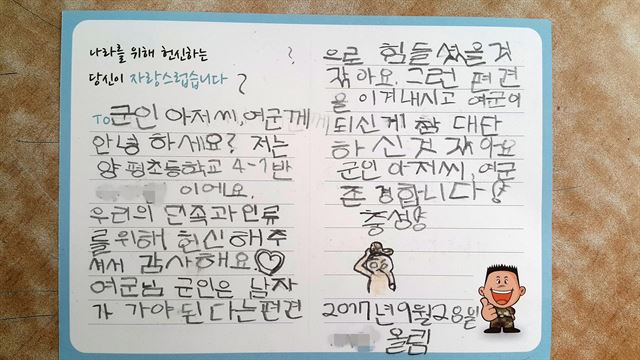 나라를 위해 헌신하는
당신이 자랑스럽습니다
TO 군인 아저씨, 여군께
안녕 하세요? 저는
양평초등학교 4-1반
이에요.
우리의 민족과 인류
를 위해 헌신 해주
셔서 감사해요. ♡
여군님 군인은 남자
가 가야 된 다는 편견
으로 힘들 셨을 것
같아요. 그런 편견
을 이겨내시고 여군이
되신게 참 대단
하신 것 같아요
군인 아저씨, 여군
존경합니다 양
충성양
2017년 9월 28일
올림